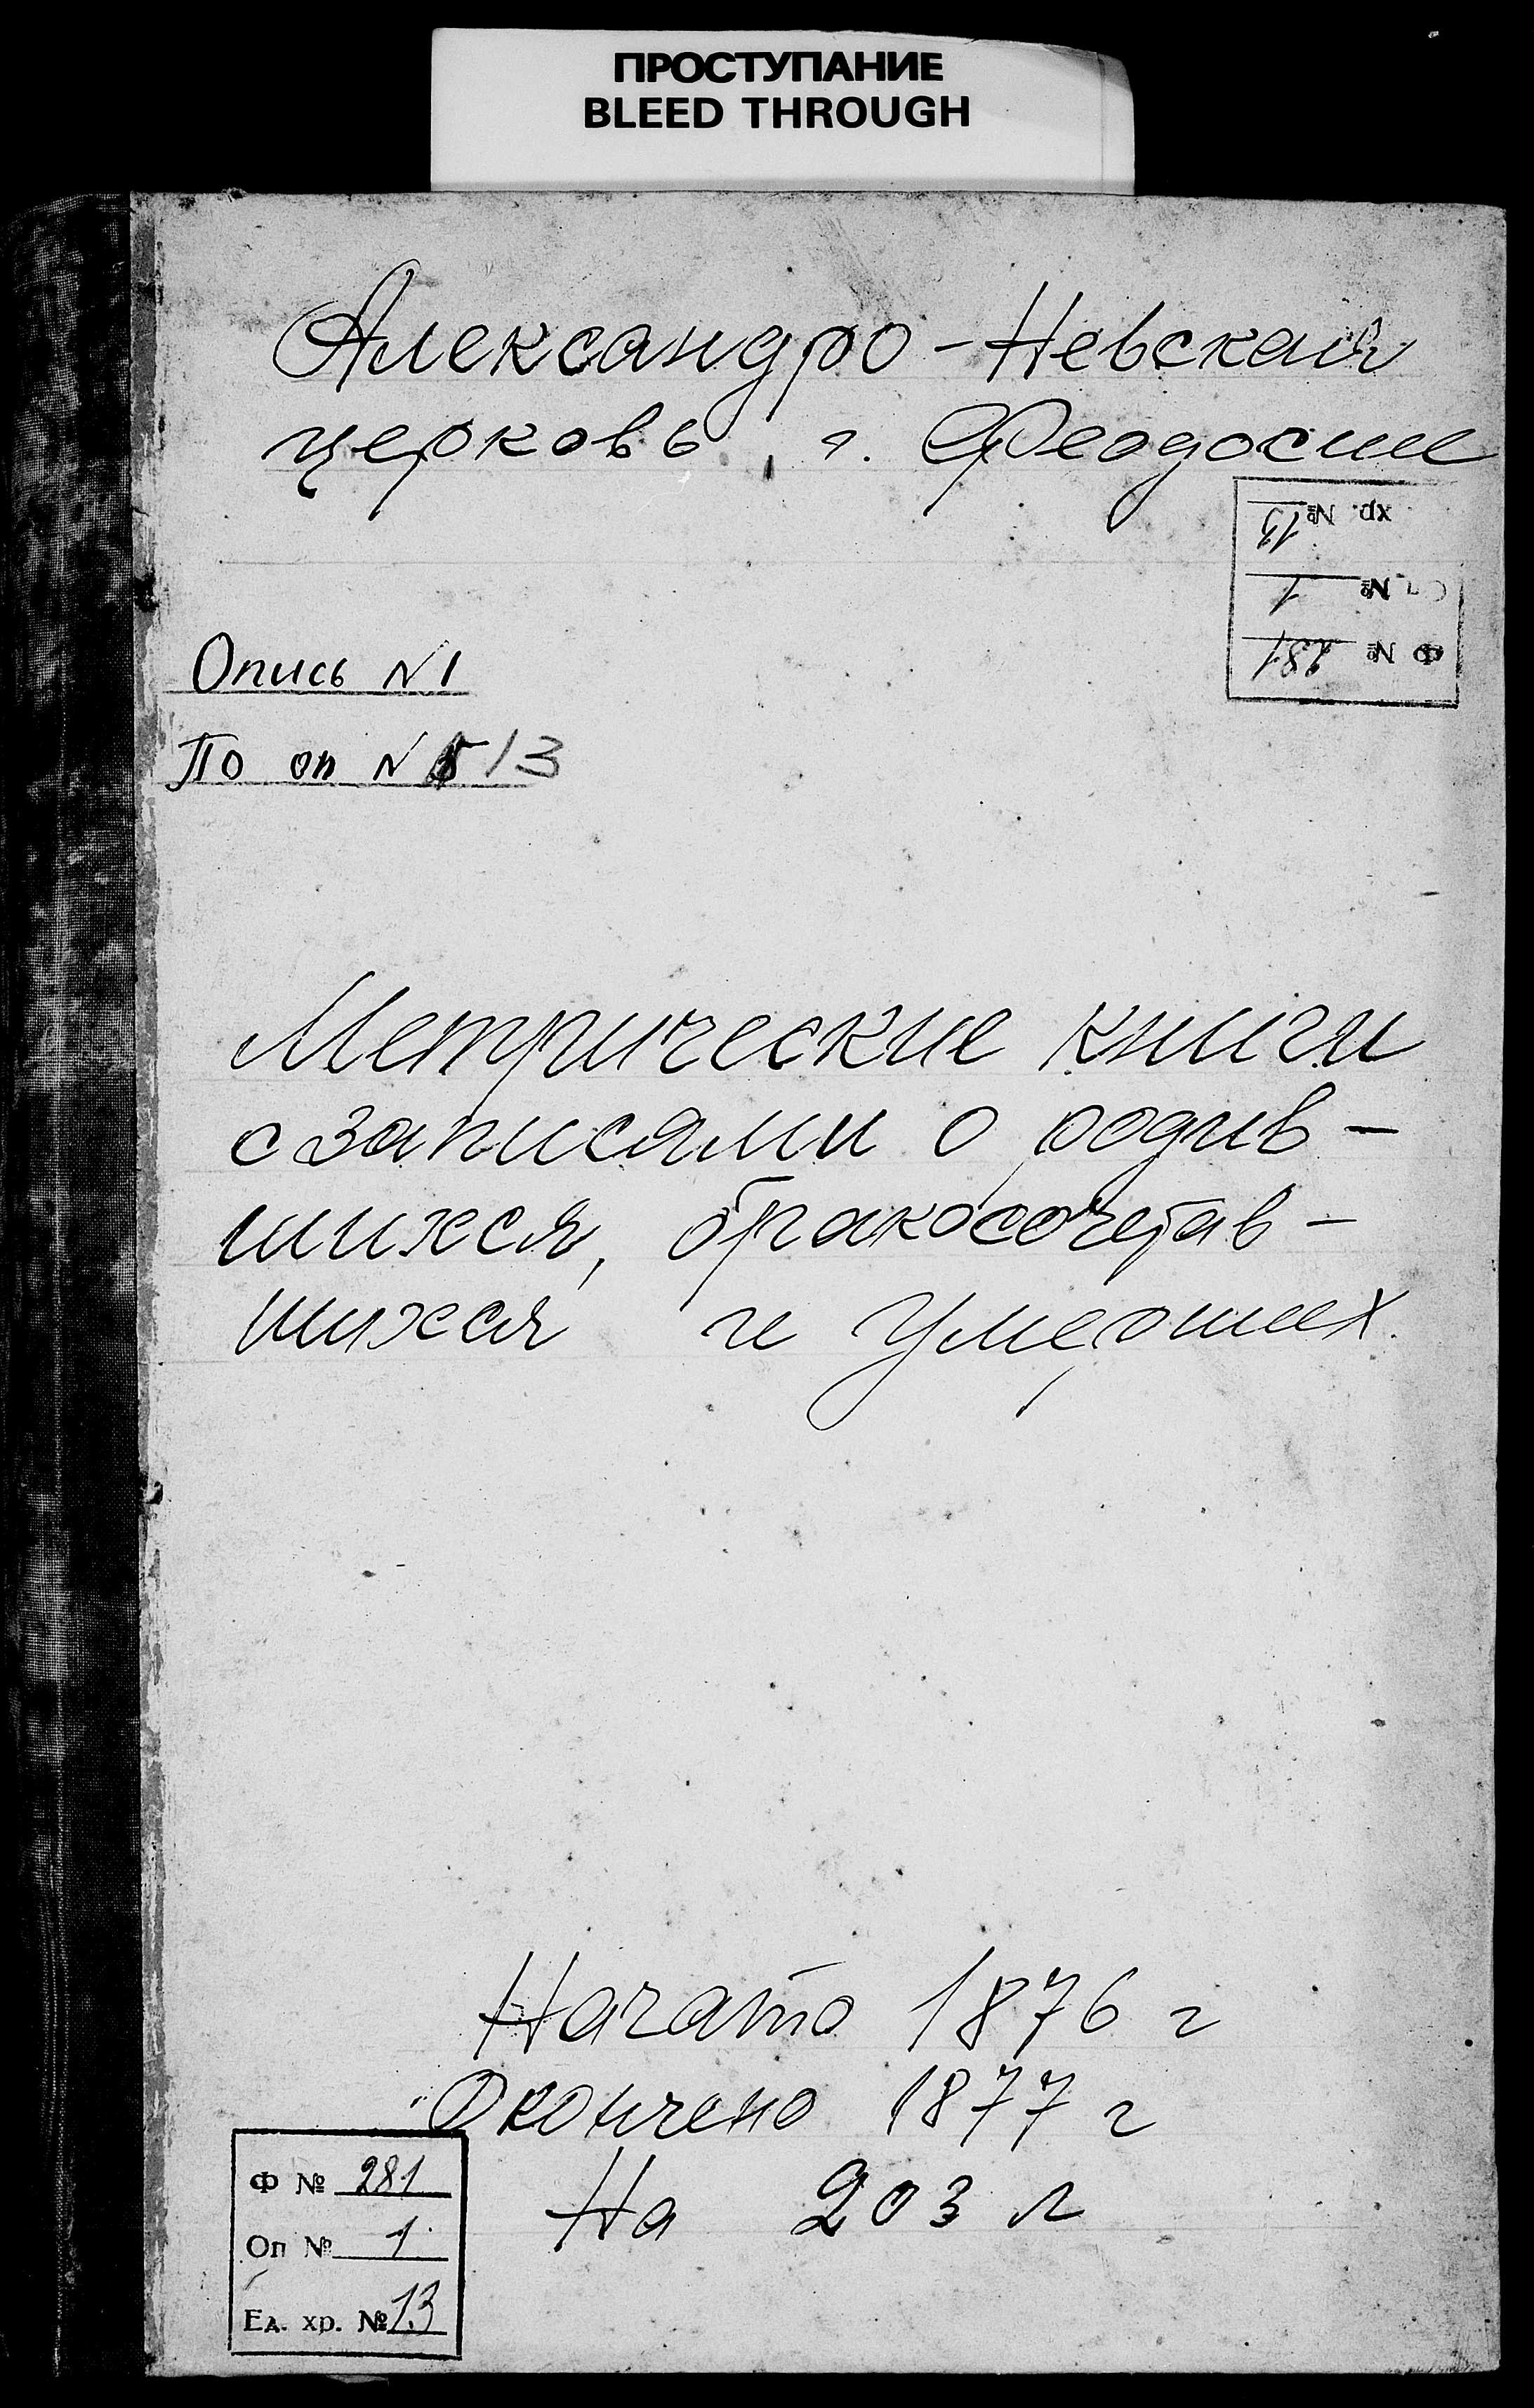 ПРОСТУПАНИЕ
BLEED THROUGH
Александро-Невская
церковь, г. Феодосии
хр. № 13
№ 1
Ф № 281
Опись N1
По оп N 13
Метрические книги
с записями о родив-
шихся, бракосочетав-
шихся и умерших.
Начато 1876 г
Окончено 1877 г
На 203 л
Ф № 281
Оп № 1
Ед. хр. № 13